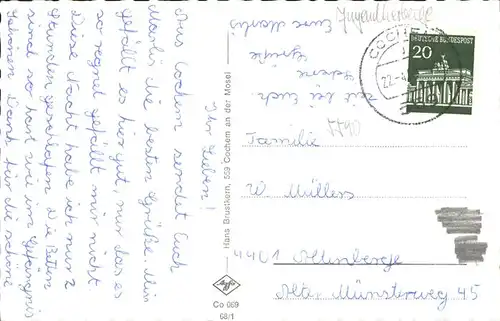 Ihr Lieben!
Aus Cochem sendet Euch
Marlis die besten Grüße. Mir
gefällt es hier gut, nur das es
so regnet gefällt mir nicht.
Diese Nacht habe ich nur 2
Stunden geschlafen. Die Betten
sind so hart wie im Gefängnis
Schönen Dank für die schöne
Zeit bei Euch.
Grüße
Eure Marlis
Jugendherberge
DEUTSCHE BUNDESPOST
20
COCHEM
22.
5590
Familie
W. Müllers
4401 Altenberge
Alter Münsterweg 45
Hans Brustkern, 559 Cochem an der Mosel
Agfa
Co 669
68/1